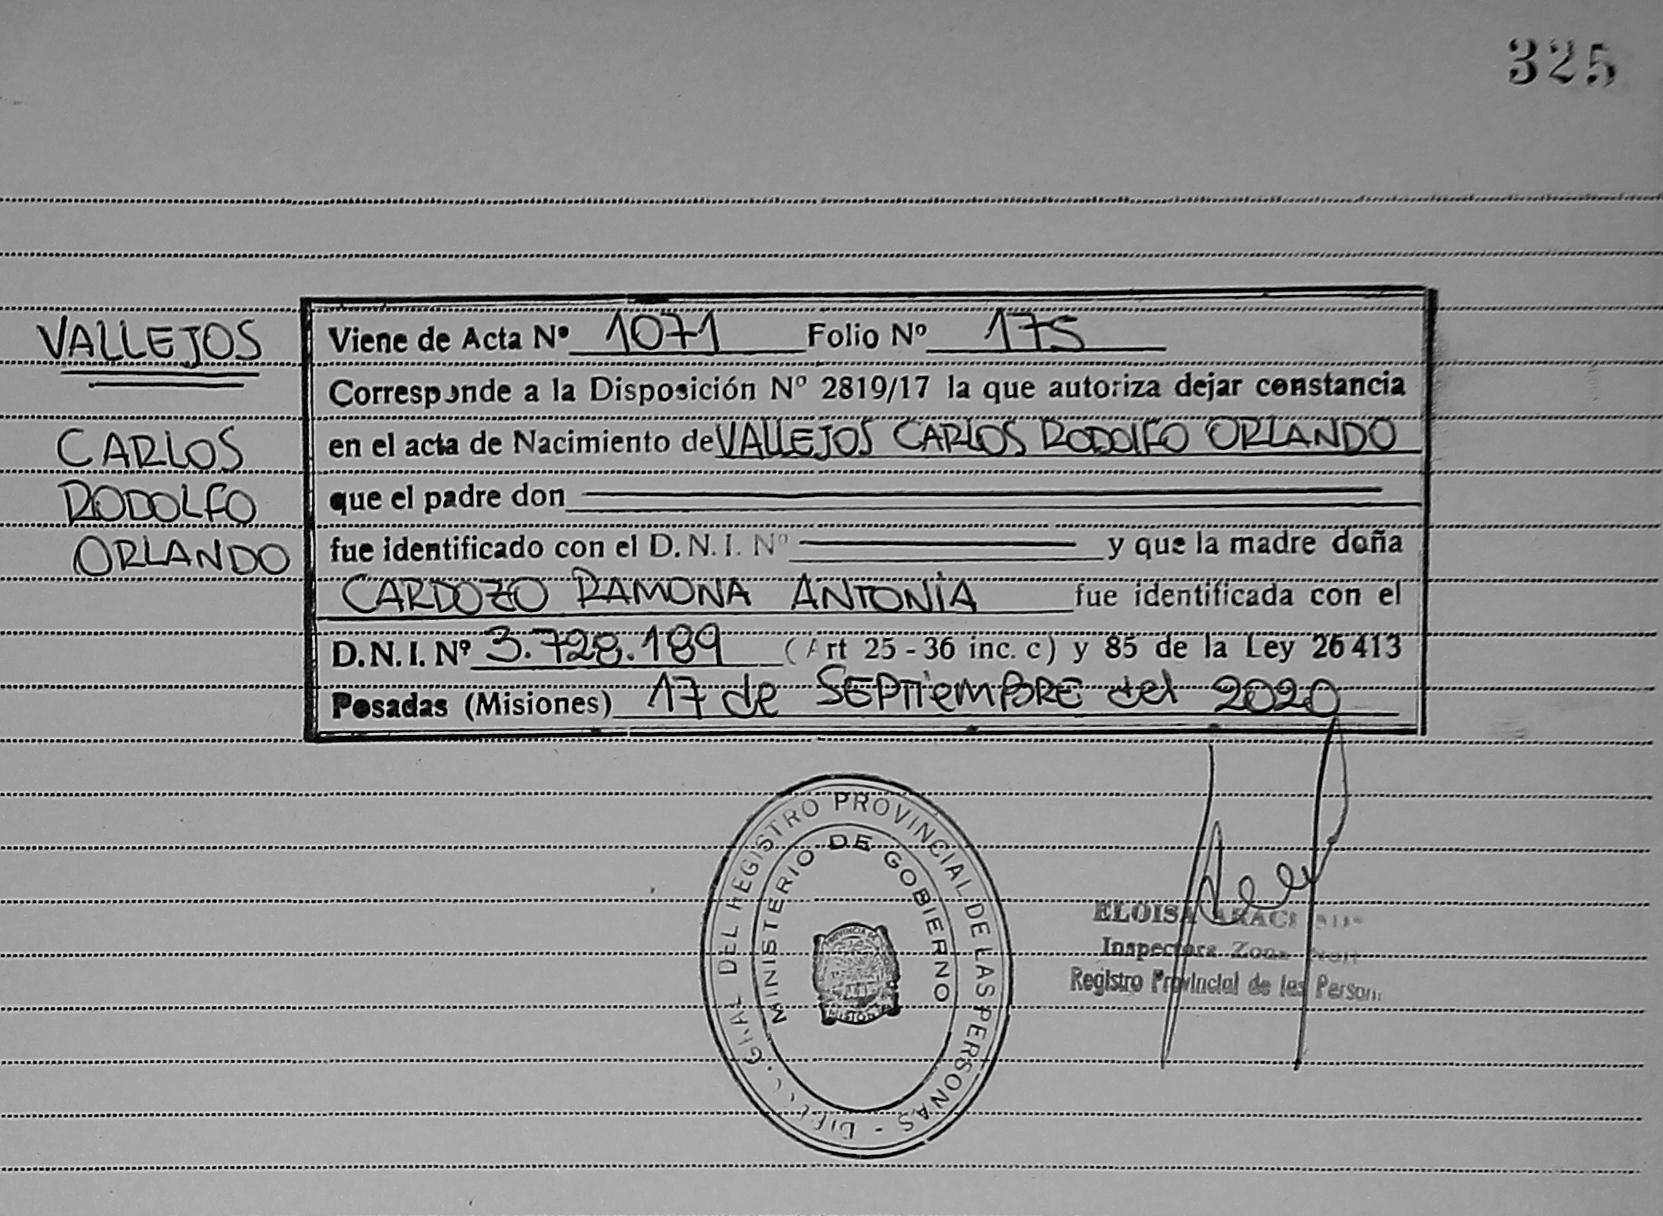 325
VALLEJOS
CARLOS
RODOLFO
ORLANDO
Viene de Acta Nº 1071 Folio Nº 175
Corresponde a la Disposición Nº 2819/17 la que autoriza dejar constancia
en el acta de Nacimiento de VALLEJOS CARLOS RODOLFO ORLANDO
que el padre don
fue identificado con el D.N.I. Nº y que la madre doña
CARDOZO RAMONA ANTONIA fue identificada con el
D.N.I. Nº 3.728.189 (Art 25 - 36 inc. c) y 85 de la Ley 26413
Posadas (Misiones) 17 de SEPTIEMBRE del 2020
GRAL DEL REGISTRO PROVINCIAL DE LAS PERSONAS -
MINISTERIO DE GOBIERNO
PROVINCIA DE
MISIONES
ELOISA
Inspectora Zona
Registro Provincial de las Person